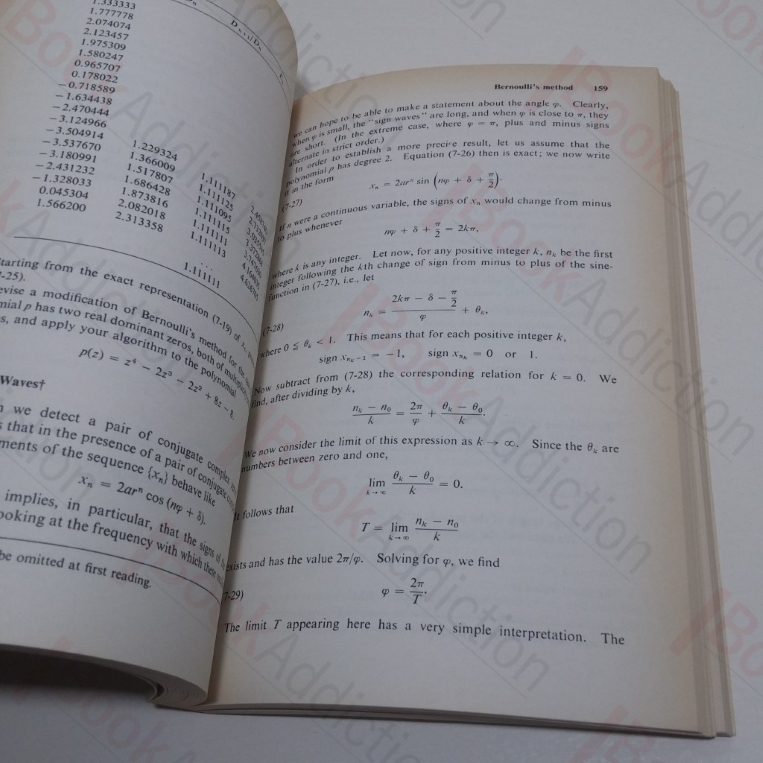 1.333333
1.777778
2.074074
2.123457
1.975309
1.580247
0.965707
0.178022
−0.718589
−1.634438
−2.470444
−3.124966
−3.504914
−3.537670 1.229324
−3.180991 1.366009
−2.431232 1.517807 1.111187
−1.328033 1.686428 1.111125
0.045304 1.873816 1.111095
1.566200 2.082018 1.111115
2.313358 1.111111
1.111113
1.111111
tarting from the exact representation (7-19) of
-25).
evise a modification of Bernoulli's method for the
mial p has two real dominant zeros, both of
s, and apply your algorithm to the polynomial
p(z) = z⁴ − 2z³ − 2z² + 8z −
Waves†
n we detect a pair of conjugate complex
s that in the presence of a pair of conjugate
ments of the sequence {xₙ} behave like
xₙ = 2arⁿ cos (nφ + δ).
implies, in particular, that the signs of
ooking at the frequency with which these
be omitted at first reading.
Bernoulli's method 159
we can hope to be able to make a statement about the angle φ. Clearly,
when φ is small, the "sign waves" are long, and when φ is close to π, they
are short. (In the extreme case, where φ = π, plus and minus signs
alternate in strict order.)
In order to establish a more precise result, let us assume that the
polynomial p has degree 2. Equation (7-26) then is exact; we now write
it in the form
(7-27) xₙ = 2arⁿ sin (nφ + δ + π/2).
If n were a continuous variable, the signs of xₙ would change from minus
to plus whenever
nφ + δ + π/2 = 2kπ,
where k is any integer. Let now, for any positive integer k, nₖ be the first
integer following the kth change of sign from minus to plus of the sine-
function in (7-27), i.e., let
(7-28) nₖ = (2kπ − δ − π/2)/φ + θₖ,
where 0 ≦ θₖ < 1. This means that for each positive integer k,
sign xₙₖ₋₁ = −1, sign xₙₖ = 0 or 1.
Now subtract from (7-28) the corresponding relation for k = 0. We
find, after dividing by k,
(nₖ − n₀)/k = 2π/φ + (θₖ − θ₀)/k.
We now consider the limit of this expression as k → ∞. Since the θₖ are
numbers between zero and one,
lim k→∞ (θₖ − θ₀)/k = 0.
It follows that
T = lim k→∞ (nₖ − n₀)/k
exists and has the value 2π/φ. Solving for φ, we find
7-29) φ = 2π/T.
The limit T appearing here has a very simple interpretation. The
BookAddiction